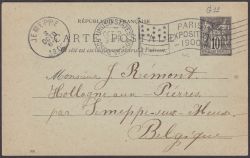 RÉPUBLIQUE FRANÇAISE
CARTE POSTALE
JEMEPPE
PARIS
EXPOSITION
1900
10
Monsieur J Remont
Hollogne-aux-Pierres
par Jemeppe-sur-Meuse
Belgique